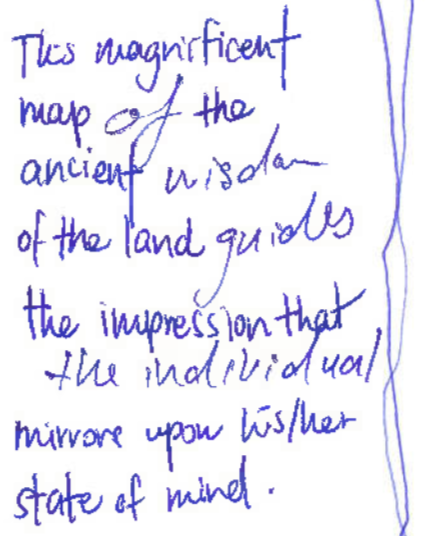 This magnificent
map of the
ancient wisdom
of the land guides
the impression that
the individual
mirrore upon his/her
state of mind.